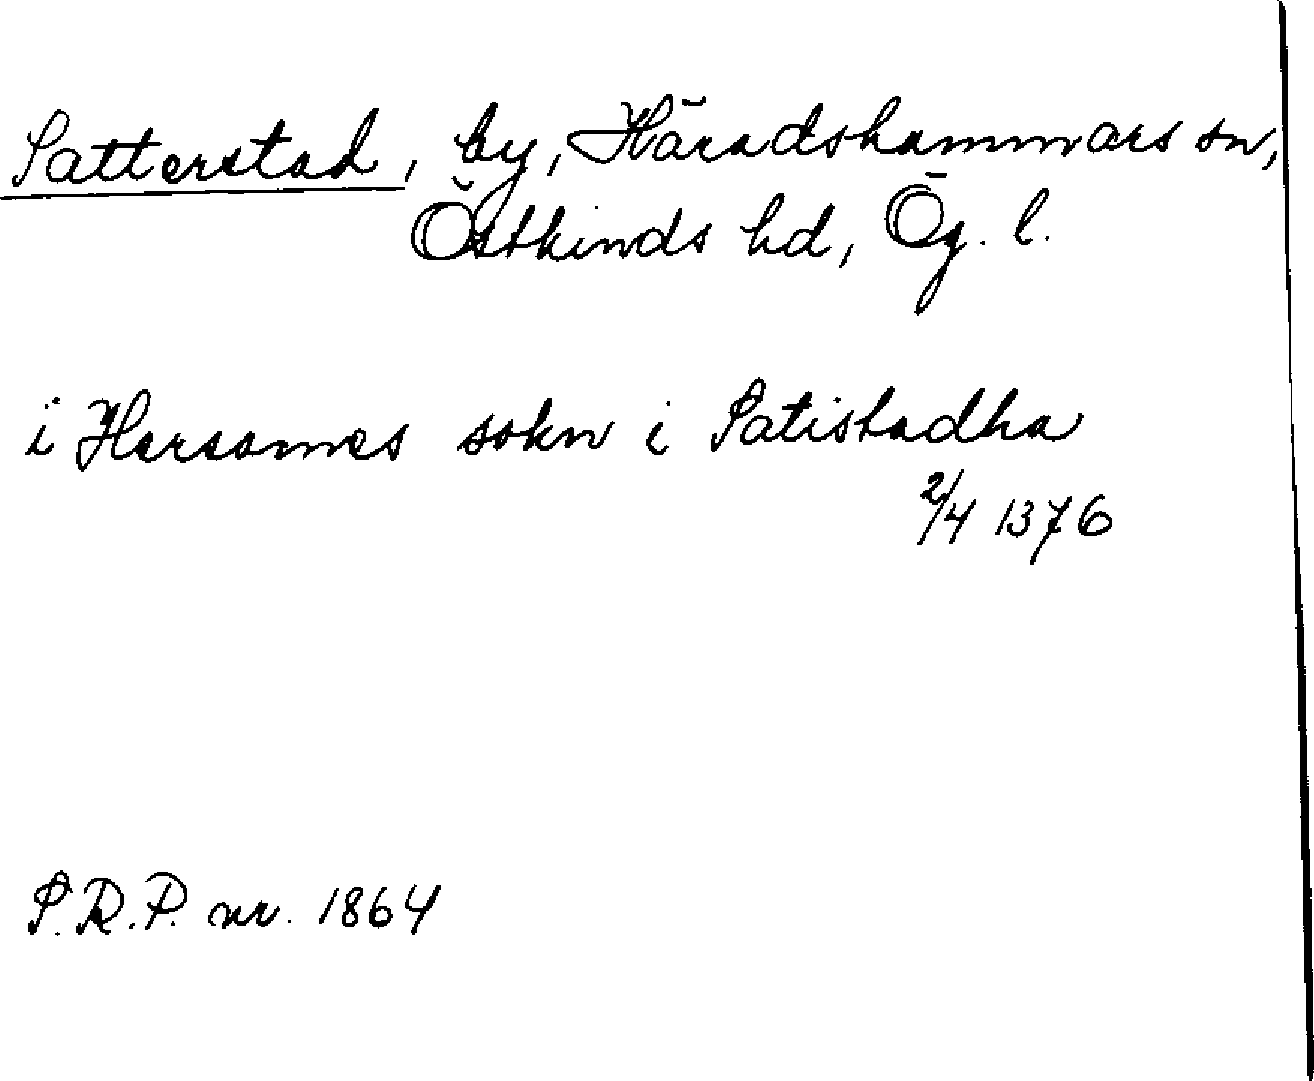 Satterstad, by, Häradshammars sn,
Östkinds hd, Ög. l.
i Hersamες sokn i Satistadha
2/4 1376
S.R.P. nr. 1864